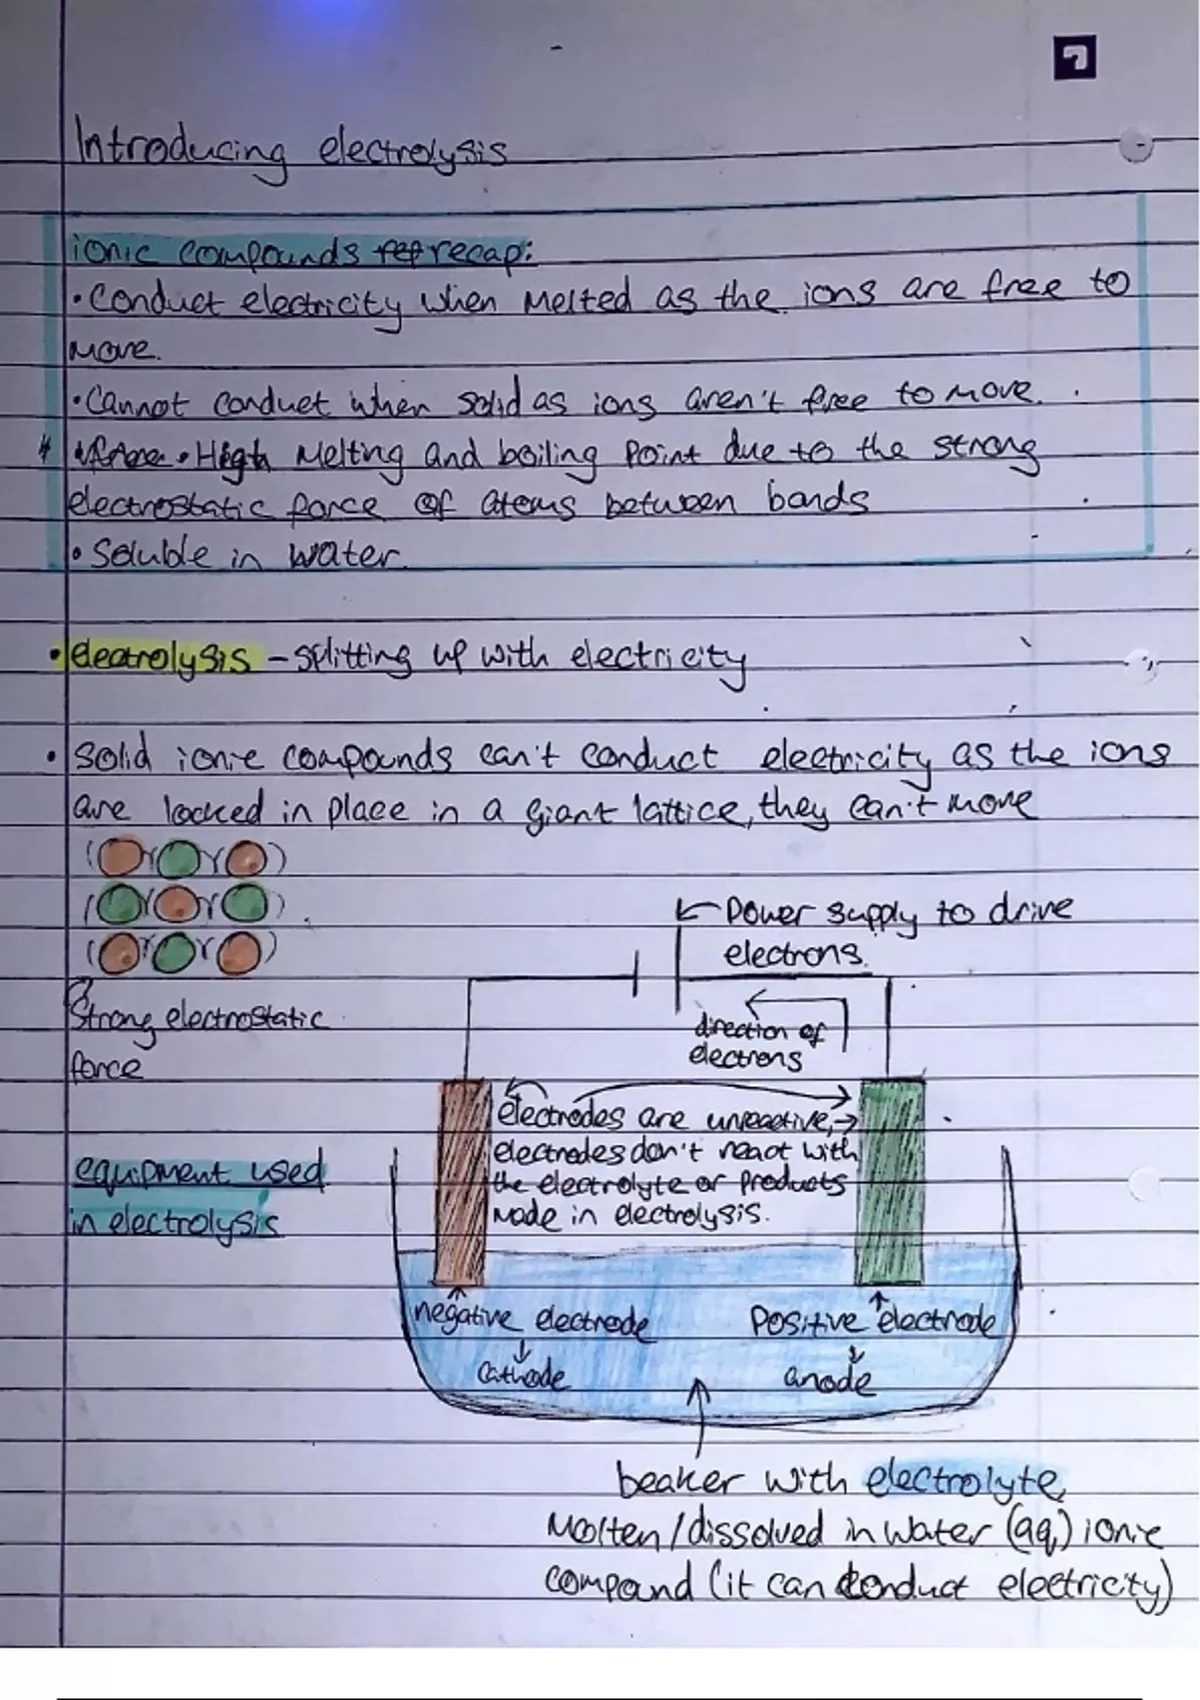 Introducing electrolysis
ionic compounds rep recap:
• Conduct electricity when melted as the ions are free to
move.
• Cannot conduct when solid as ions aren't free to move.
• High melting and boiling point due to the strong
electrostatic force of atoms between bonds
• Soluble in water.
• electrolysis – splitting up with electricity
• Solid ionic compounds can't conduct electricity as the ions
are locked in place in a giant lattice, they can't move
Strong electrostatic
force
Power supply to drive
electrons.
direction of
electrons
equipment used
in electrolysis
electrodes are unreactive,
electrodes don't react with
the electrolyte or products
made in electrolysis.
negative electrode
cathode
positive electrode
anode
beaker with electrolyte,
Molten/dissolved in water (aq) ionic
compound (it can conduct electricity)